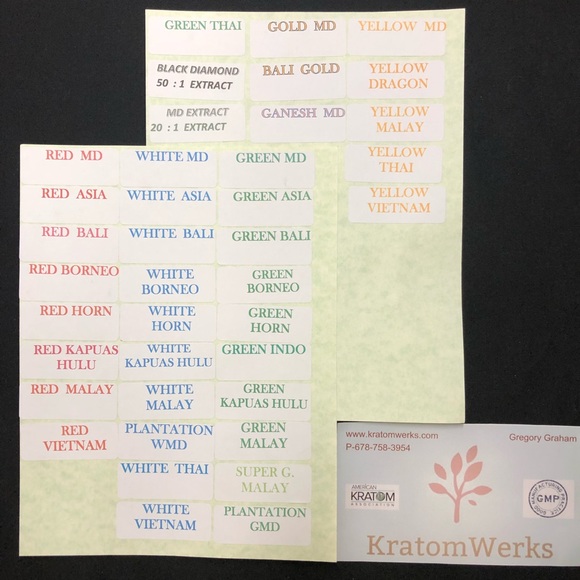 GREEN THAI
GOLD MD
YELLOW MD
BLACK DIAMOND
50 : 1 EXTRACT
BALI GOLD
YELLOW
DRAGON
MD EXTRACT
20 : 1 EXTRACT
GANESH MD
YELLOW
MALAY
YELLOW
THAI
YELLOW
VIETNAM
RED MD
WHITE MD
GREEN MD
RED ASIA
WHITE ASIA
GREEN ASIA
RED BALI
WHITE BALI
GREEN BALI
RED BORNEO
WHITE
BORNEO
GREEN
BORNEO
RED HORN
WHITE
HORN
GREEN
HORN
RED KAPUAS
HULU
WHITE
KAPUAS HULU
GREEN INDO
RED MALAY
WHITE
MALAY
GREEN
KAPUAS HULU
RED
VIETNAM
PLANTATION
WMD
GREEN
MALAY
WHITE THAI
SUPER G.
MALAY
WHITE
VIETNAM
PLANTATION
GMD
www.kratomwerks.com
Gregory Graham
P-678-758-3954
AMERICAN
KRATOM
ASSOCIATION
GOOD MANUFACTURING PRACTICE
GMP
KratomWerks